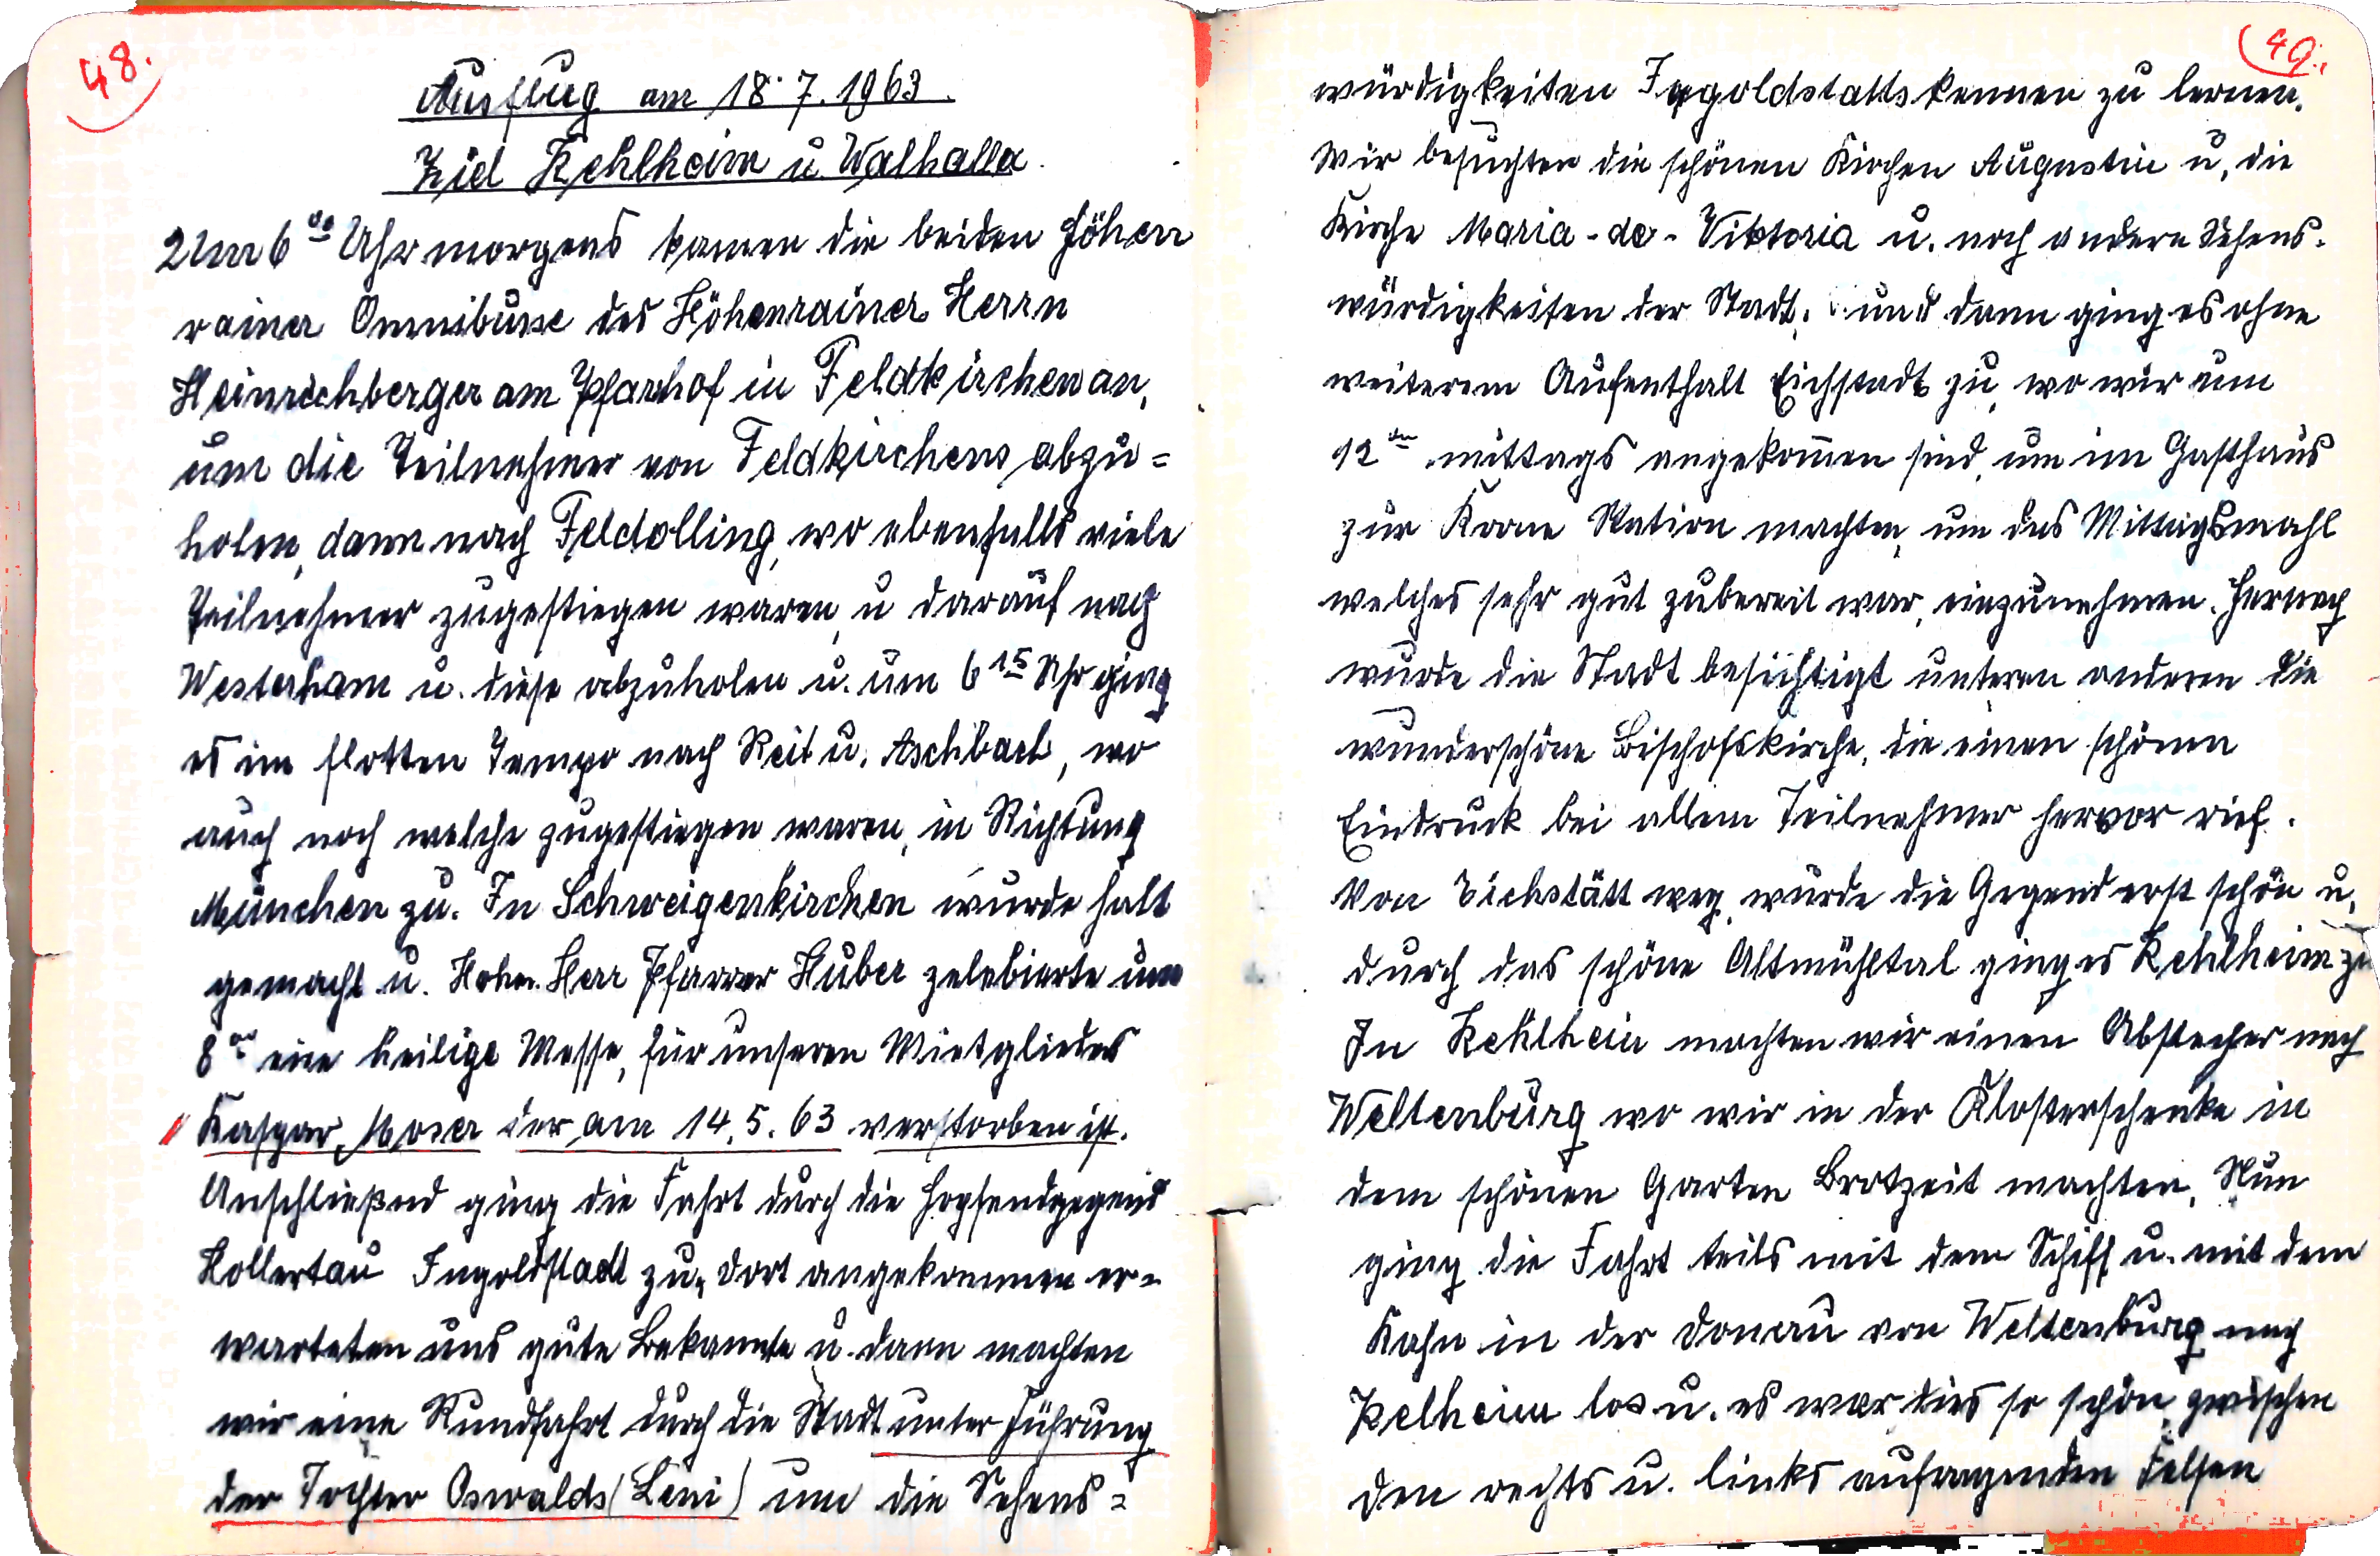 48.
Ausflug am 18.7.1963.
Ziel Kehlheim u. Walhalla.
Um 6 00 Uhr morgens kamen die beiden Höhen
rainer Omnibusse des Höhenrainer Herrn
Heinrichberger am Pfarrhof in Feldkirchen an,
um die Teilnehmer von Feldkirchens abzu=
holen, dann nach Feldolling, wo ebenfalls viele
Teilnehmer zugestiegen waren, u darauf nach
Westerham u. diese abzuholen u. um 6 15 Uhr ging
es im flotten Tempo nach Reit u. Aschbach, wo
auch noch welche zugestiegen waren, in Richtung
München zu. In Schweigenkirchen wurde halt
gemacht u. Hohw. Herr Pfarrer Huber zelebierte um
8 00 eine heilige Messe, für unseren Mietgliedes
Kaspar Moser der am 14.5.63 verstorben ist.
Anschließend ging die Fahrt durch die Hopfendgegend
Hollertau Ingoldstadt zu, dort angekommen er=
warteten uns gute Bekannte u. dann machten
wir eine Rundfahrt durch die Stadt unter Führung
der Tochter Oswalds (Leni) um die Sehens=
49.
würdigkeiten Ingoldstatts kennen zu lernen.
Wir besuchten die schönen Kirchen Augustin u. die
Kirche Maria-de-Viktoria u. noch andere Sehens=
würdigkeiten der Stadt. und dann ging es ohne
weiterem Aufenthalt Eichstadt zu, wo wir um
12 mittags angekommen sind, um im Gasthaus
zur Krone Station machten, um das Mittagsmahl
welches sehr gut zubereit war, einzunehmen. Hernach
wurde die Stadt besichtigt unteren anderen die
wunderschöne Bischofskirche, die einen schönen
Eindruck bei allem Teilnehmer hervor rief.
Von Eichstätt weg, wurde die Gegend erst schön u.
durch das schöne Altmühltal ging es Kehlheim zu
In Kehlheim machten wir einen Abstecher nach
Weltenburg wo wir in der Klosterschenke in
dem schönen Garten Brotzeit machten. Nun
ging die Fahrt teils mit dem Schiff u. mit dem
Kahn in der Donau von Weltenburg nach
Kelheim los u. es war dies so schön, zwischen
den rechts u. links aufragenden Felsen